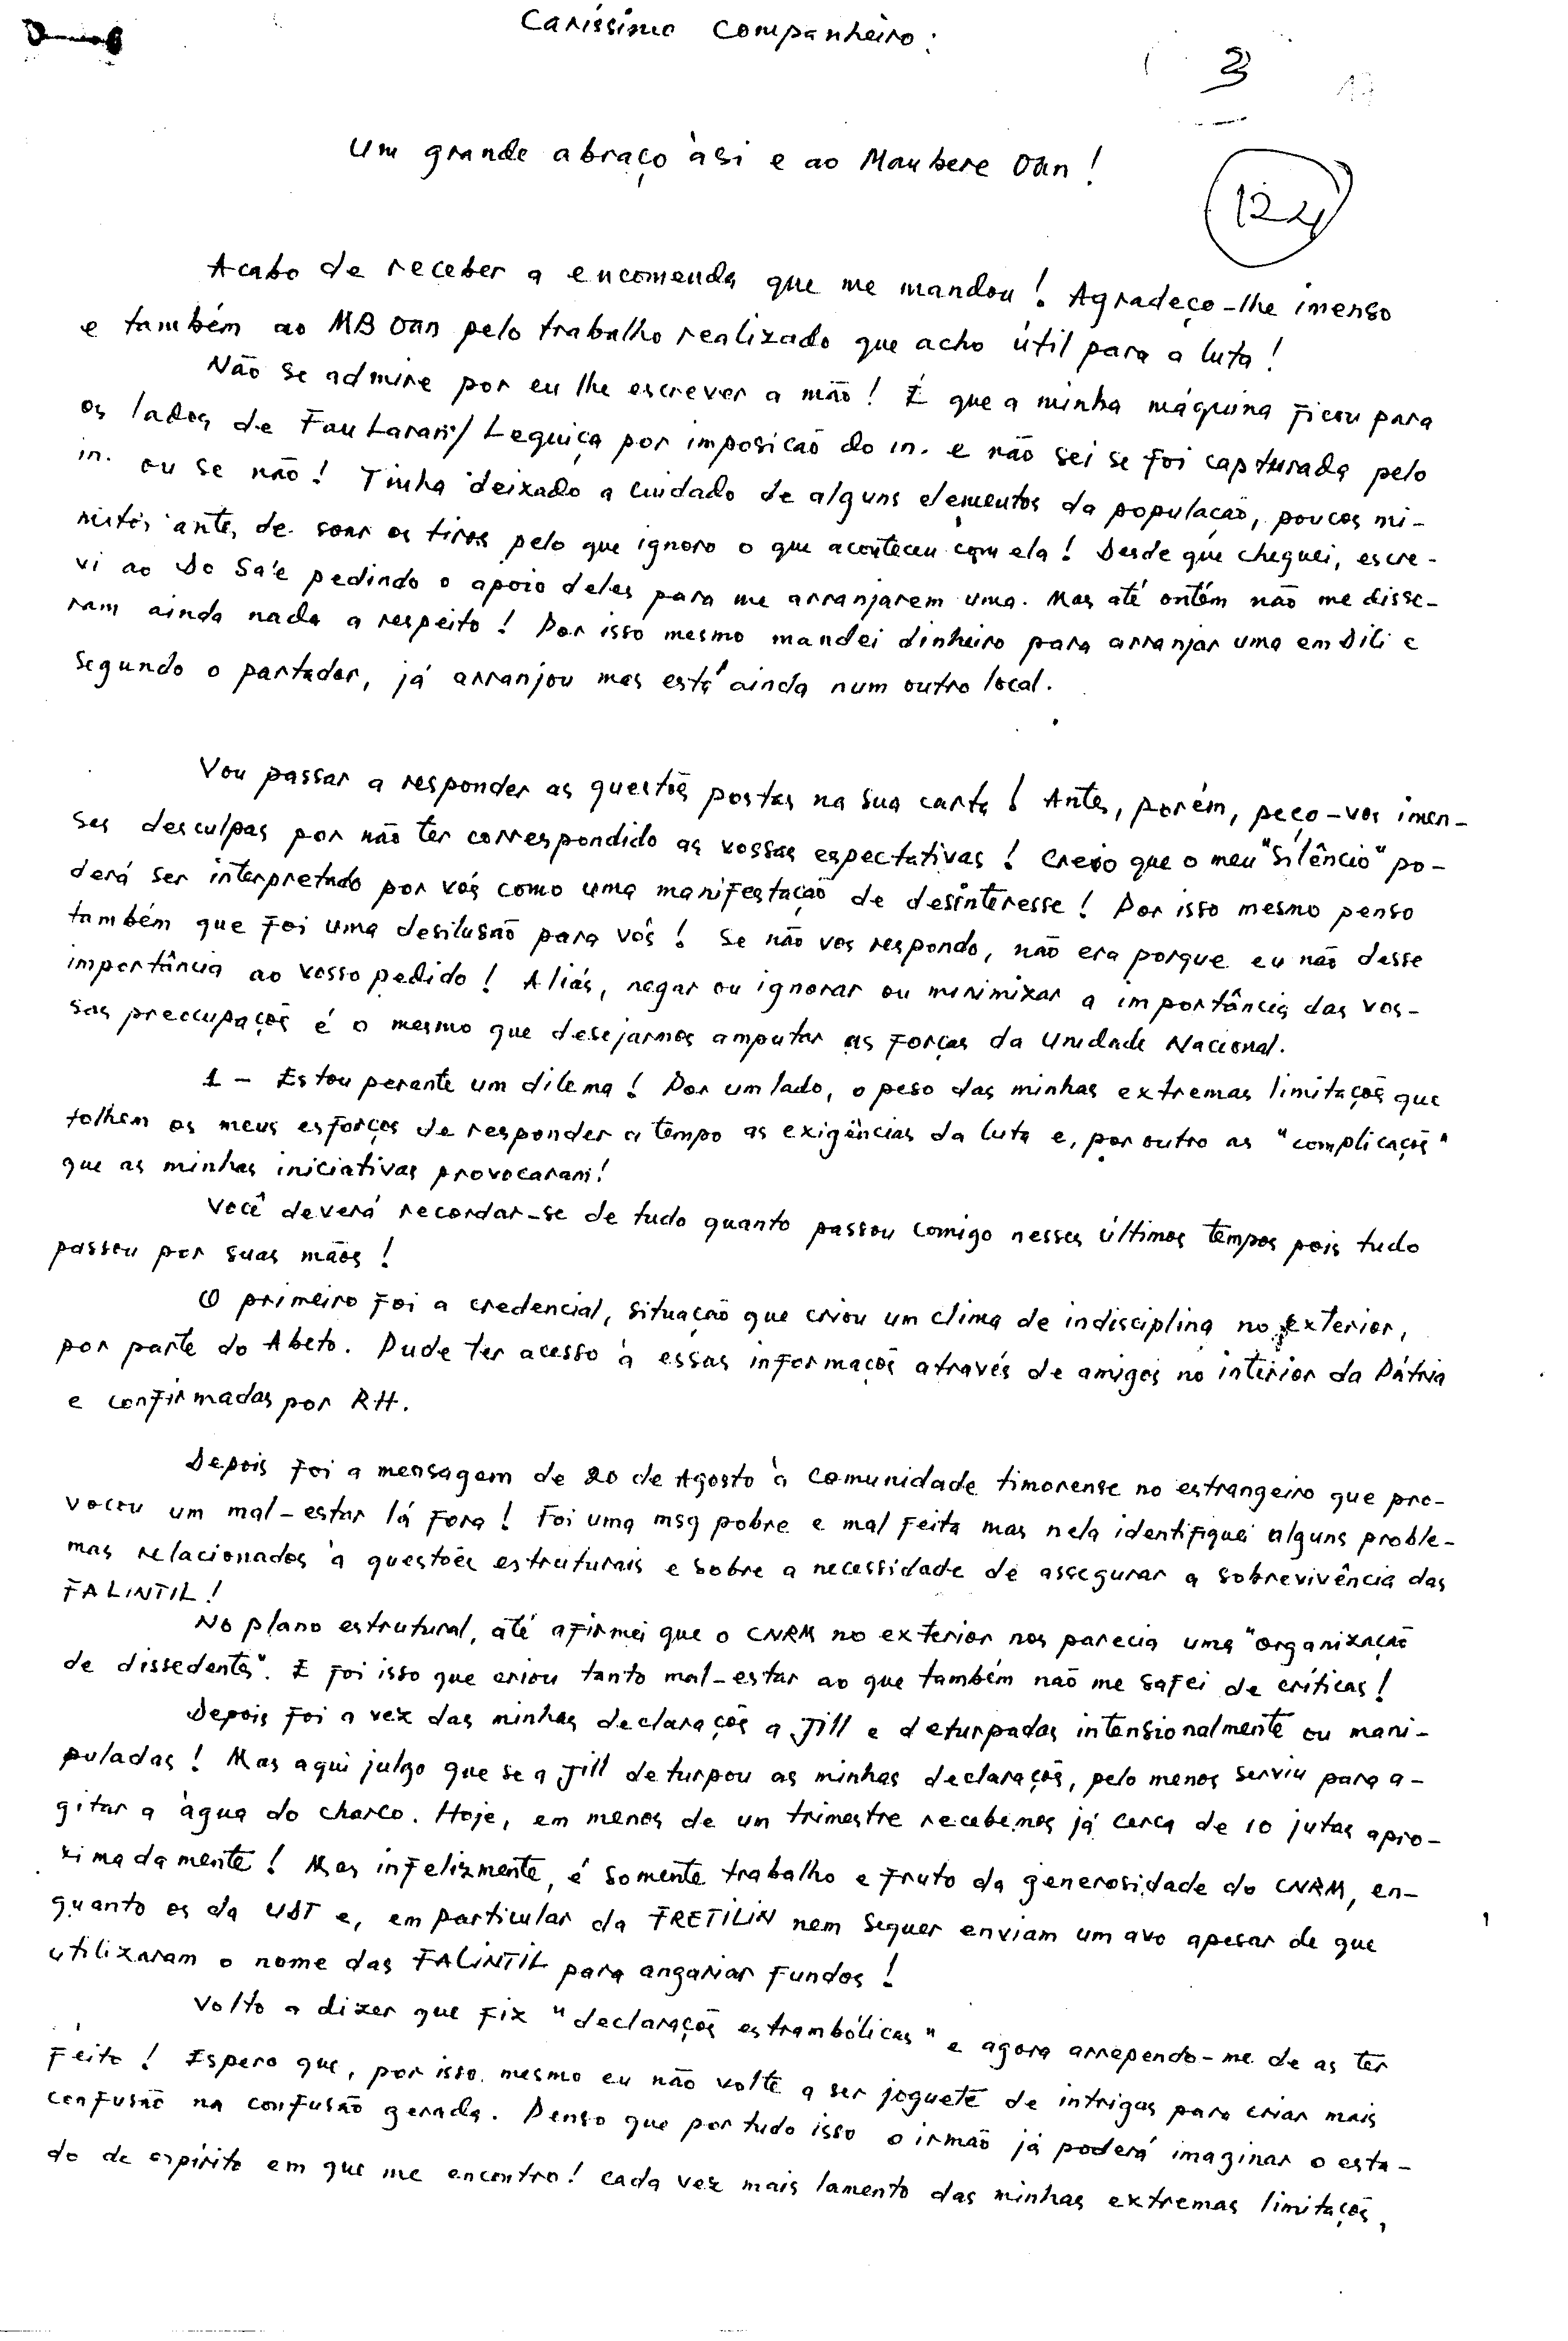 Caríssimo Companheiro:
3
Um grande abraço à si e ao Maubere Oan!
124
Acabo de receber a encomenda que me mandou! Agradeço-lhe imenso
e também ao MB Oan pelo trabalho realizado que acho útil para a luta!
Não se admire por eu lhe escrever a mão! É que a minha máquina ficou para
os lados de FauLaran/Lequiça por imposição do in. e não sei se foi capturada pelo
in. ou se não! Tinha deixado a cuidado de alguns elementos da população, poucos mi-
nutos antes de soar os tiros pelo que ignoro o que aconteceu com ela! Desde que cheguei, escre-
vi ao Do Sa'e pedindo o apoio deles para me arranjarem uma. Mas até ontém não me disse-
ram ainda nada a respeito! Por isso mesmo mandei dinheiro para arranjar uma em Dili e
segundo o portador, já arranjou mas está ainda num outro local.
Vou passar a responder as questõs postas na sua carta! Antes, porém, peço-vos imen-
sas desculpas por não ter correspondido as vossas espectativas! Creio que o meu "silêncio" po-
derá ser interpretado por vós como uma manifestação de desinteresse! Por isso mesmo penso
também que foi uma desilusão para vós! Se não vos respondo, não era porque eu não desse
importância ao vosso pedido! Aliás, negar ou ignorar ou minimizar a importância das vos-
sas preocupaçõs é o mesmo que desejarmos amputar as forças da Unidade Nacional.
1 - Estou perante um dilema! Por um lado, o peso das minhas extremas limitaçõs que
tolhem os meus esforços de responder a tempo as exigências da luta e, por outro as "complicaçõs"
que as minhas iniciativas provocaram!
Você deverá recordar-se de tudo quanto passou comigo nesses últimos tempos pois tudo
passou por suas mãos!
O primeiro foi a credencial, situação que criou um clima de indisciplina no exterior,
por parte do Abeto. Pude ter acesso à essas informaçõs através de amigos no interior da Pátria
e confirmadas por RH.
Depois foi a mensagem de 20 de Agosto à comunidade timorense no estrangeiro que pro-
vocou um mal-estar lá fora! Foi uma msg pobre e mal feita mas nela identifiquei alguns proble-
mas relacionados à questões estruturais e sobre a necessidade de assegurar a sobrevivência das
FALINTIL!
No plano estrutural, até afirmei que o CNRM no exterior nos parecia uma "organização
de dissedentes". E foi isso que criou tanto mal-estar ao que também não me safei de críticas!
Depois foi a vez das minhas declaraçõs a Jill e deturpadas intensionalmente ou mani-
puladas! Mas aqui julgo que se a Jill deturpou as minhas declaraçõs, pelo menos serviu para a-
gitar a àgua do charco. Hoje, em menos de um trimestre recebemos já cerca de 10 jutas apro-
ximadamente! Mas infelizmente, é somente trabalho e fruto da generosidade do CNRM, en-
quanto os da UDT e, em particular da FRETILIN nem sequer enviam um avo apesar de que
utilizaram o nome das FALINTIL para angariar fundos!
Volto a dizer que fiz "declaraçõs estrambólicas" e agora arrependo-me de as ter
feito! Espero que, por isso mesmo eu não volte a ser joguete de intrigas para criar mais
confusão na confusão gerada. Penso que por tudo isso o irmão já poderá imaginar o esta-
do de espírito em que me encontro! Cada vez mais lamento das minhas extremas limitaçõs,